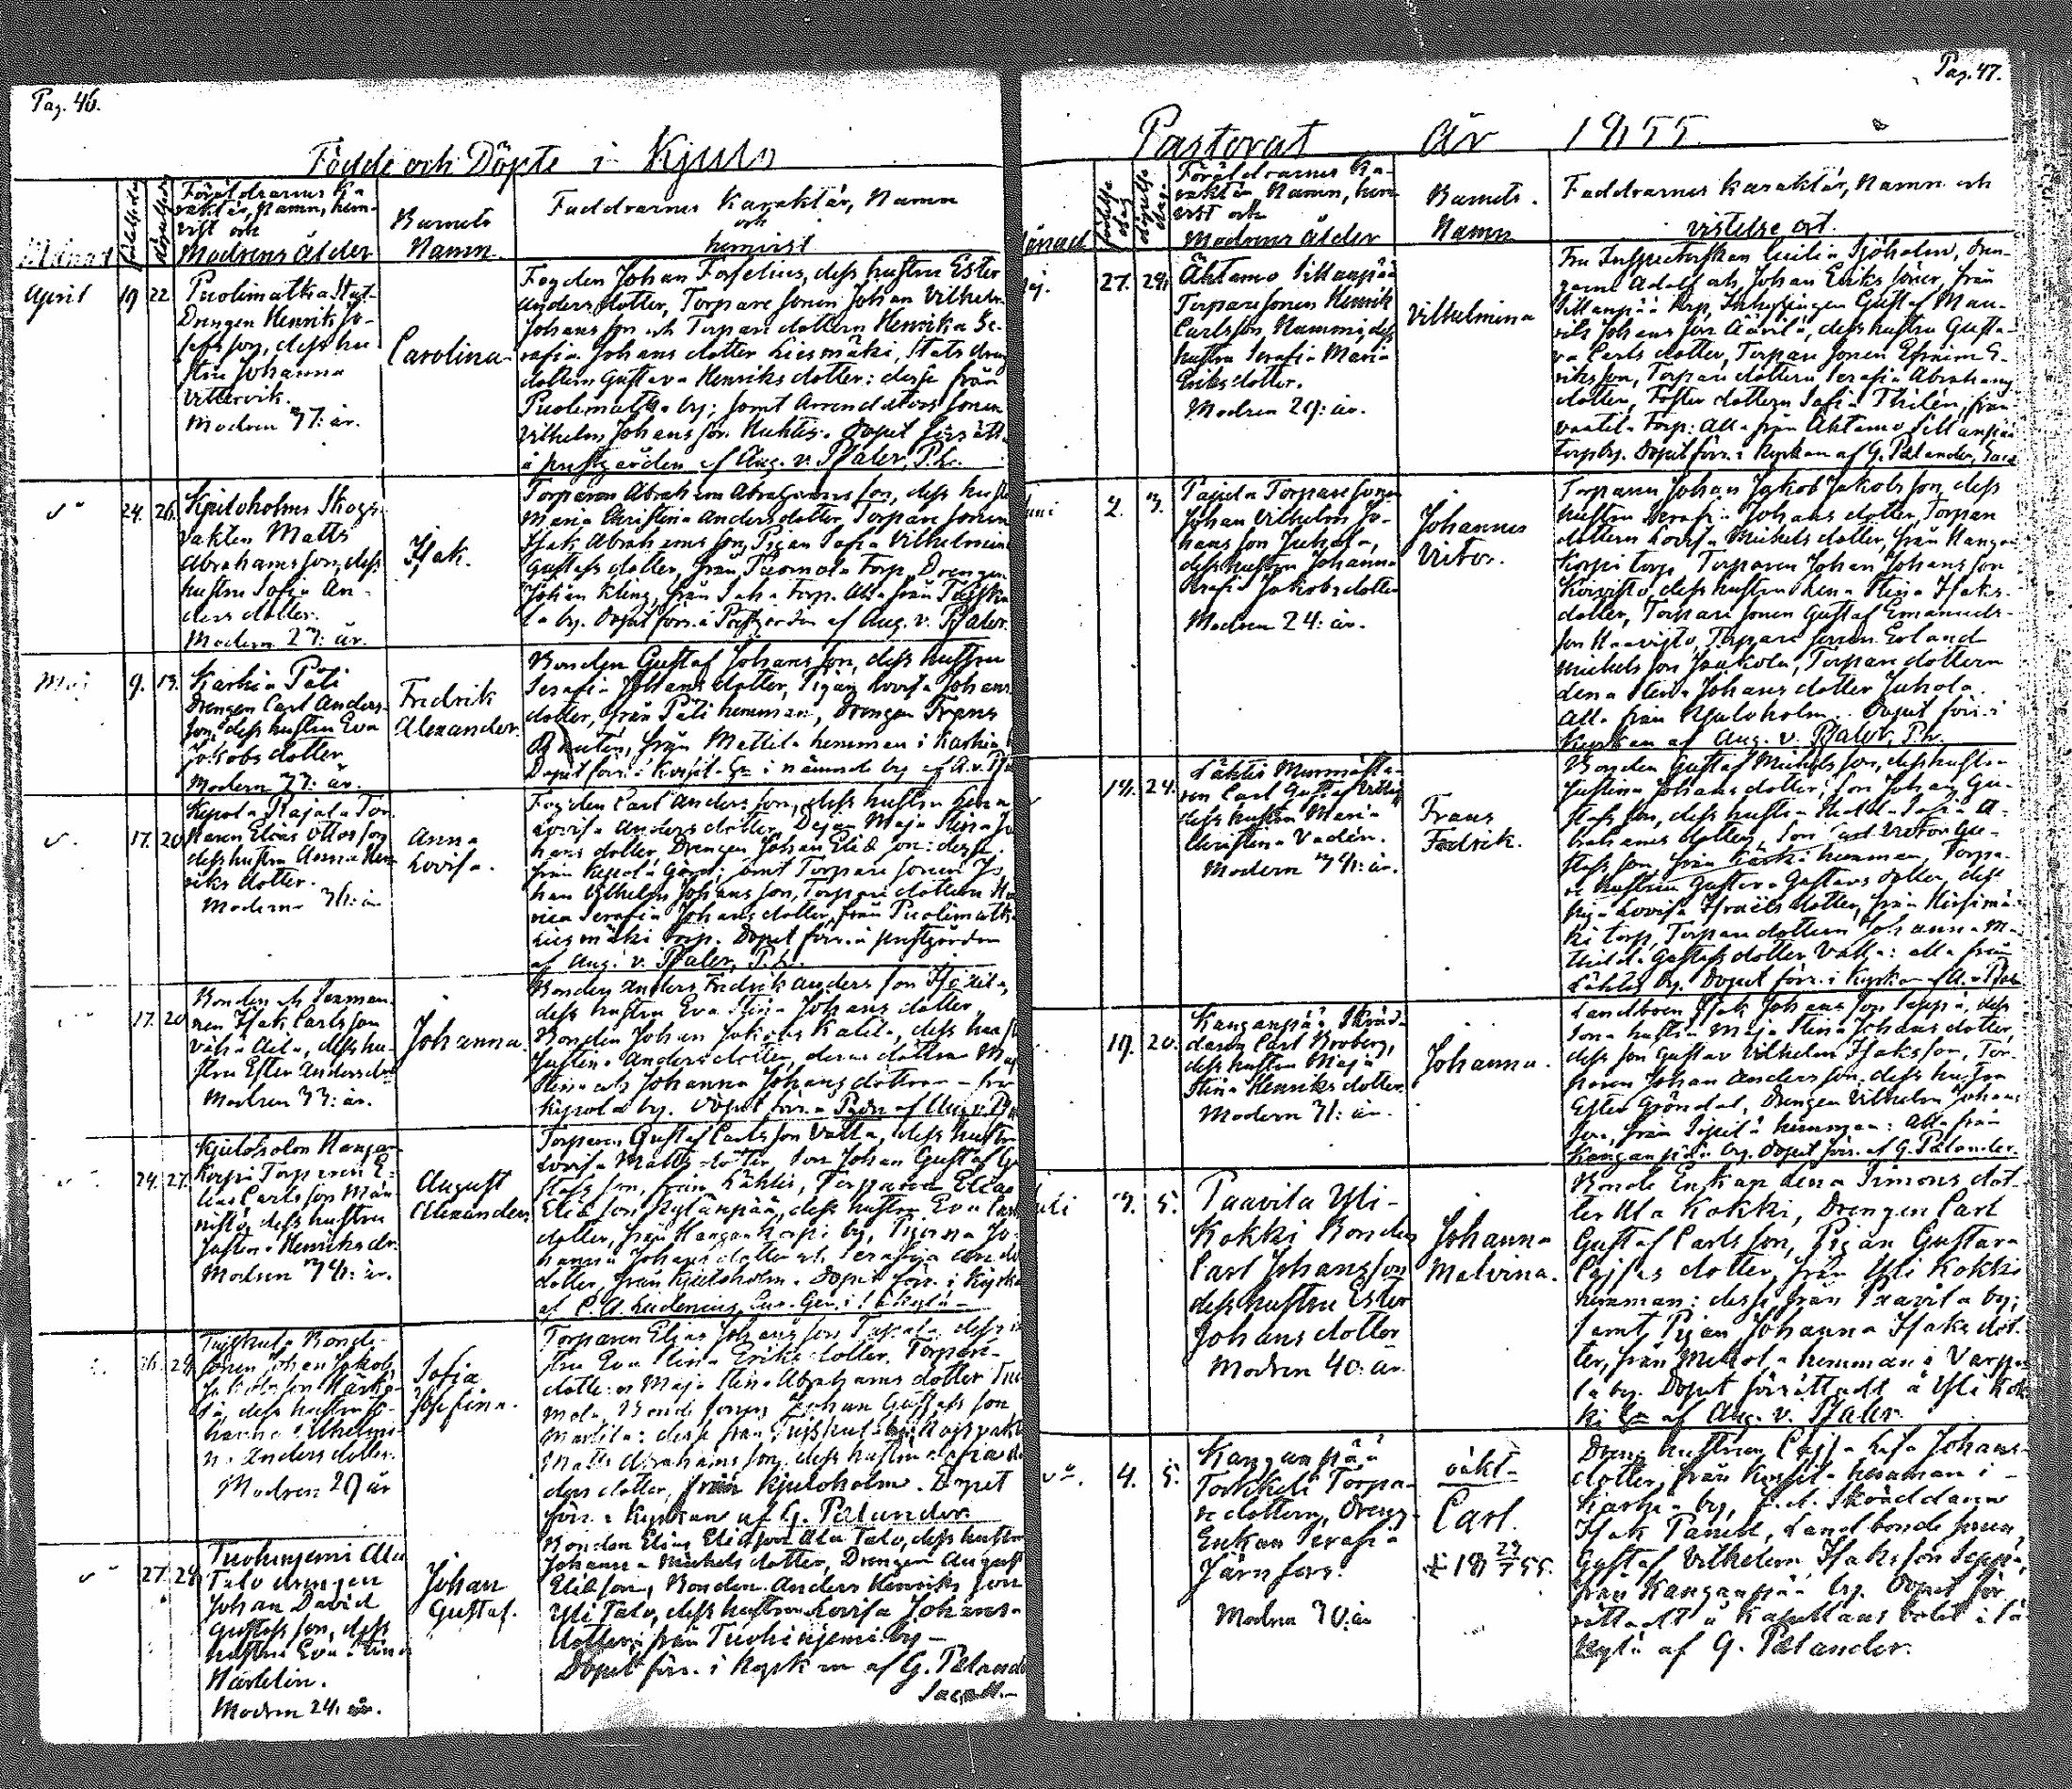 Pag. 46.
Födde och Döpte i Kjulo
Månad
Föräldrarnes Ka
raktär, Namn, hem-
vist och
Modrens ålder
Barnets
Namn.
Faddrarnes Karaktär, Namn
och
hemvist
April
19
22
Puolimatka Stat-
Drengen Henrik Jo-
sefsson, dess hu
stru Johanna
Vittervik.
Modren 37: år.
Carolina
Fogden Johan Forselius, dess hustru Ester
Andersdotter, Torpare sonen Johan Vilhelm
Johansson och Torpare dottern Henrika Se-
rafia Johansdotter Liesmäki, Statsdreng
dottern Gustava Henriksdotter: desse från
Puolimatka by; samt Arrendators sonen
Vilhelm Johansson Huhtis. Dopet förrätt.
å prestgården af Aug. v. Pfaler, P.L.
24.
26.
Kjuloholms Skogs
vakten Matts
Abrahamsson, dess
hustru Sofia An-
dersdotter.
Modern 27: år.
Isak.
Torparen Abraham Abrahamsson, dess hust
Maria Christina Andersdotter, Torpare sonen
Isak Abrahamsson, Pigan Sofia Vilhelmin
Gustafsdotter, från Tuomola Torp, Drengen
Johan Kling, från Torp. Alla från
la by. Dopet förr. å Prestgården af Aug. v. Pfaler.
Maj
9.
13.
Karhia Päti
Drengen Carl Anders-
son, dess hustru Eva
Jakobsdotter
Modern 33: år.
Fredrik
Alexander.
Bonden Gustaf Johansson, dess hustru
Serafia Johansdotter, Pigan Lovisa Johans
dotter, från Päti hemman, Drengen Frans
från Mattila hemman i Karhia
Dopet förr. i i nämnde by af A. v. Pfa
17.
20
Kepola Rajala Tor
paren Elias Ottosson
dess hustru Anna Hen
riksdotter.
Modern 36: år
Anna
Lovisa.
Fogden Carl Andersson, dess hustru Lena
Lovisa Andersdotter, Dejan Maja Stina Jo
hansdotter, Drengen Johan Eliasson: desse
från Kepola Gård; samt Torpare sonen Jo
han Vilhelm Johansson, Torpare dottern He
rica Serafia Johansdotter, från Puolimatka
Liesmäki torp. Dopet förr. å prestgården
af Aug. v. Pfaler, P.L.
17.
20
Bonden och Sexman-
nen Isak Carlsson
Vähä Aila, dess hu-
stru Ester Andersdr
Modren 33: år.
Johanna.
Bonden Anders Fredrik Andersson
dess hustru Eva Stina Johansdotter
Bonden Johan Jakobs Katila, dess hust
Justina Andersdotter, deras döttrar Maj
Stina och Johanna Johansdöttrar — från
Kepola by. Dopet förr. å Pgdn af Aug. v. Pfa
24.
27.
Kjuloholm Hangan
Korpi Torparen E-
lias Carlsson Män-
nistö, dess hustru
Justina Henriksdr.
Modren 34: år.
August
Alexander.
Torparen Gustaf Carlsson Valla, dess hustr
Lovisa Mattsdotter, Son Johan Gustaf Gu
stafsson, från Lähtis, Torparen Elias
Eliasson Kylänpää, dess hustru Eva Carls
dotter, från Hangankorpi by, Pigorna Jo-
hanna Johansdotter och Serafia
dotter, från Kjuloholm. Dopet förr. i Kyrka
af C. A. Lidenius,
26.
28
Tuiskula Bonde
sonen Johan Jakob
Jakobsson Härkä-
lä, dess hustru Jo-
hanna Vilhelmi-
na Andersdotter.
Modren 29 år
Sofia
Josefina.
Torparen Elias Johansson
stru Eva Stina Eriksdotter, Torpare-
Maja Stina Abrahamsdotter Tuo
mola, Bonde sonen Johan Gustafsson
Marttila: desse från Tuiskula by, Skogsvakt
Matts Abrahamsson, dess hustru Sofia An
dersdotter, från Kjuloholm. Dopet
förr. i Kyrkan af G. Pælander
27.
28
Tuohiniemi Ala
Talo drengen
Johan David
Gustafsson, dess
hustru Eva Stina
Härdelin.
Modren 24. år.
Johan
Gustaf.
Bonden Elias Eliasson Ala Talo, dess hustru
Johanna Michelsdotter, Drengen August
Eliasson, Bonden Anders Henriksson
Yli Talo, dess hustru Lovisa Johans-
dotter, från Tuohiniemi by —
Dopet förr. i Kyrkan af G. Pælander
Sacell.
Pag. 47.
Pastorat År 1855.
Månad
födelse
dag
döpelse
dag.
Föräldrarnes Ka-
raktär, Namn, hem
vist och
Modrens ålder
Barnets
Namn
Faddrarnes Karaktär, Namn och
vistelse ort.
27.
28.
Äktamo Sillanpää
Torpare sonen Henrik
Carlsson Nummi, dess
hustru Serafia Maria
Eriksdotter.
Modren 29: år.
Vilhelmina
Fru Inspectorskan Cecilia Sjöholm, Dren-
garne Adolf och Johan Eriks söner, från
Sillanpää torp, Inhysingen Gustaf Mau-
rits Johansson Äärilä, dess hustru Gusta-
va Carlsdotter, Torpare sonen Efraim E-
riksson, Torpare dottern Serafia Abrahams
dotter, Foster dottern Sofia Thilén, från
torp: Alla från Äktamo Sillanpää
torp by. Dopet förr. i Kyrkan af G. Pælander, Sace
2.
3.
Pajula Torpare sonen
Johan Vilhelm Jo-
hansson Juhola,
dess hustru Johanna
Serafia Jakobsdotter
Modren 24: år.
Johannes
Victor.
Torparen Johan Jakob Jakobsson, dess
hustru Serafia Johansdotter, Torpare
dottern Lovisa Michelsdotter, från Hangan
Korpi torp, Torparen Johan Johansson
Koivisto, dess hustru Lena Stina Isaks-
dotter, Torpare sonen Gustaf Emanuels-
son Haavisto, Torpare sonen Erland
Michelsson Jaakola, Torpare dottern
Lena Stina Johansdotter Juhola.
Alla från Kjuloholm. Dopet förr. i
Kyrkan af Aug. v. Pfaler, P.L.
18.
24.
Lähtis Murmästa-
ren Carl Gustaf
dess hustru Maria
Christina Vadén.
Modern 34: år.
Frans
Fredrik.
Bonden Gustaf Michelsson, dess hustru
Justina Johansdotter, Son Johan Gu-
stafsson, dess hustru Sofia A-
brahamsdotter, Son Victor Gu-
stafsson, från hemman, Torpa-
re hustrun Gustava Gustavsdotter, dess
piga Lovisa Israelsdotter, från Hirsimä-
ki torp, Torpare dottern Johanna Ma-
thilda Gustafsdotter Valla: alla från
Lähtis by. Dopet förr. i Kyrkan af A. v. Pfal
19.
20.
Kanganpää Skräd-
daren Carl Broberg,
dess hustru Maja
Stina Henriksdotter.
Modern 31: år.
Johanna.
Landboen Isak Johansson Seppä, dess
hustru Maja Stina Johansdotter,
dess son Gustav Vilhelm Isaksson, Tor-
paren Johan Andersson, dess hustru
Ester Gröndal, Drengen Vilhelm Johans
son, från hemman: Alla från
Kanganpää by. Dopet förr. af G. Pælander.
Juli
3.
5.
Paavila Yli-
Kokki Bonden
Carl Johansson
dess hustru Ester
Johansdotter
Modren 40: år.
Johanna
Malvina.
Bonde Enkan Lena Simonsdot-
ter Ala Kokki, Drengen Carl
Gustaf Carlsson, Pigan Gustava
Cajsasdotter, från Yli Kokki
hemman: desse från Paavila by;
samt Pigan Johanna Isaksdot-
ter, från Mikola hemman i Varppu
la by. Dopet förrättadt å Yli Kok
ki af Aug. v. Pfaler.
4.
5.
Kanganpää
Torkkeli Torpa-
re dottern, Dreng-
Enkan Serafia
Järnfors.
Modren 30: år
oäkt-
Carl.
† 18 29/7 55.
Dreng hustrun Cajsa Lisa Johans-
dotter, från Korpila hemman i
Karhia by, f. d. Skräddaren
Isak Panelé, Landbonde sonen
Gustaf Vilhelm Isaksson Seppä,
från Kanganpää by. Dopet för
rättadt å Kapellans bolet i Sä
kylä af G. Pælander.